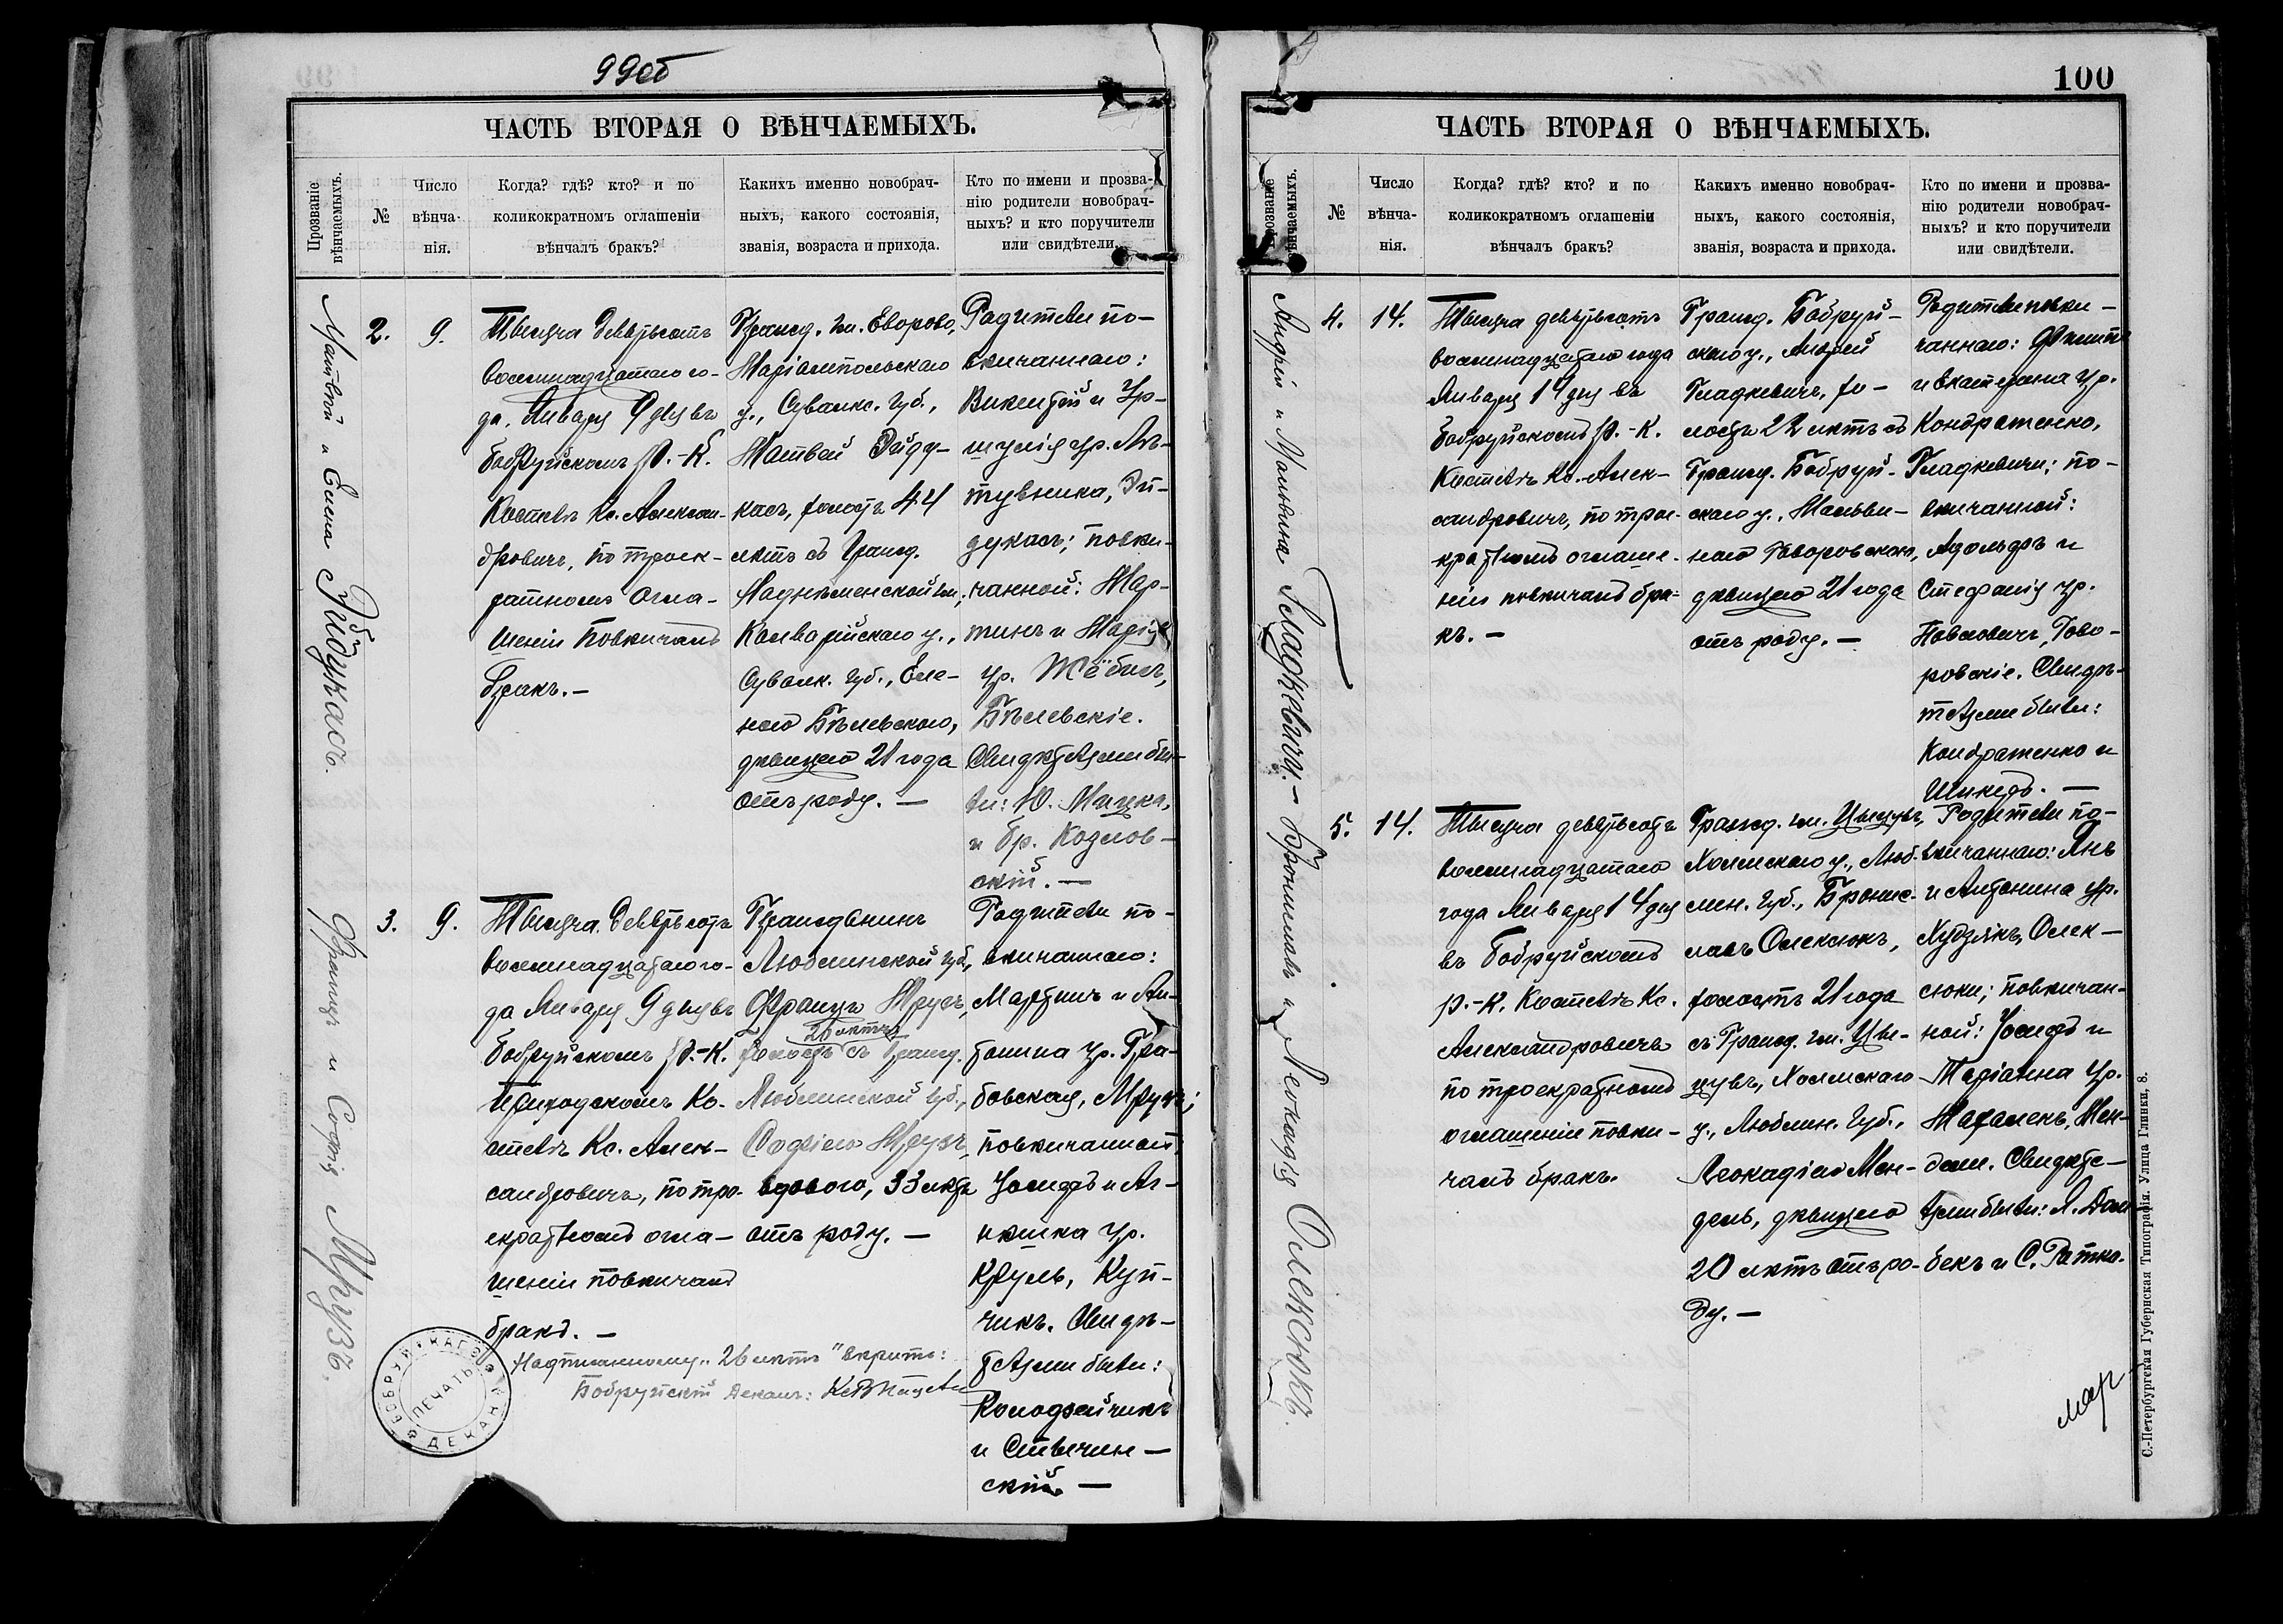 99об
ЧАСТЬ ВТОРАЯ О ВѢНЧАЕМЫХЪ.
Прозваніе вѣнчаемыхъ.
№
Число вѣнча- нія.
Когда? гдѣ? кто? и по
коликократномъ оглашеніи
вѣнчалъ бракъ?
Какихъ именно новобрач-
ныхъ, какого состоянія,
званія, возраста и прихода.
Кто по имени и прозва-
нію родители новобрач-
ныхъ? и кто поручители
или свидѣтели.
Матвѣй и Елена Эйдукасъ.
2.
9.
Тысяча девятьсотъ
восемнадцатаго го-
да, Января 9 дня въ
Бобруйскомъ Р.-К.
Костелѣ Кс. Алексан-
дровичъ, по троек-
ратномъ огла-
шеніи повѣнчалъ
бракъ.—
Гражд. гм.
Маріампольскаго
у., Сувалкс. губ.,
Матвѣй Эйду-
касъ, холостъ 44
лѣтъ съ гражд.
Кальварійскаго у.,
Сувалк. губ., Еле-
ною Бѣлевскою,
дѣвицею 21 года
отъ роду. —
Родители по-
вѣнчаннаго:
Викентій и Ур-
шуля ур.
Эй-
дукасъ; повѣн-
чанной: Мар-
тинъ и Марія
ур.
Бѣлевскіе.
Свидѣтелями бы-
ли: Ю.
и Бр. Козлов-
скій. —
Францъ и Софія Мрузъ.
3.
9.
Тысяча девятьсотъ
восемнадцатаго го-
да Января 9 дня въ
Бобруйскомъ Р.-К.
Приходскомъ Ко-
стелѣ Кс. Алек-
сандровичъ, по тро-
екратномъ огла-
шеніи повѣнчалъ
бракъ. —
Гражданинъ
Люблинской губ.,
Францъ Мрузъ,
26 лѣтъ
холостъ съ гражд.
Люблинской губ.,
Софіею Мрузъ,
вдовою, 33 лѣтъ
отъ роду. —
Родители по-
вѣнчаннаго:
Мартинъ и Ан-
тонина ур. Гра-
бовская, Мрузъ;
повѣнчанной:
Іосифъ и Аг-
нѣшка ур.
Круль, Куп-
чикъ. Свидѣ-
телями были:
Колодзейчикъ
и
скій. —
Надписанному „26 лѣтъ" вѣрить:
Бобруйскій Деканъ:
БОБРУЙСКАГО
ДЕКАНА
ПЕЧАТЬ
100
ЧАСТЬ ВТОРАЯ О ВѢНЧАЕМЫХЪ.
Прозваніе вѣнчаемыхъ.
№
Число вѣнча- нія.
Когда? гдѣ? кто? и по
коликократномъ оглашеніи
вѣнчалъ бракъ?
Какихъ именно новобрач-
ныхъ, какого состоянія,
званія, возраста и прихода.
Кто по имени и прозва-
нію родители новобрач-
ныхъ? и кто поручители
или свидѣтели.
Андрей и Мальвина Гладкевичи.—
4.
14.
Тысяча девятьсотъ
восемнадцатаго года
Января 14 дня въ
Бобруйскомъ Р.-К.
Костелѣ Кс. Алек-
сандровичъ, по трое-
кратномъ оглаше-
ніи повѣнчалъ бра-
къ. —
Гражд. Бобруй-
скаго у., Андрей
Гладкевичъ, хо-
лостъ 22 лѣтъ съ
Гражд. Бобруй-
скаго у., Мальви-
ною Говоровскою,
дѣвицею 21 года
отъ роду. —
Родители повѣн-
чаннаго:
и Екатерина ур.
Кондратенко,
Гладкевичи; по-
вѣнчанной:
Адольфъ и
Стефанія ур.
Павловичъ, Гово-
ровскіе. Свидѣ-
телями были:
Кондратенко и
Брониславъ и Леокадія Олексюкъ.
5.
14.
Тысяча девятьсотъ
восемнадцатаго
года Января 14 дня
въ Бобруйскомъ
Р.-К. Костелѣ Кс.
Александровичъ
по троекратномъ
оглашеніи повѣн-
чалъ бракъ.
Гражд. гм. Цыцувъ,
Холмскаго у., Люб-
лин. губ., Брониc-
лавъ Олексюкъ,
холостъ 21 года
съ Гражд. гм. Цы-
цувъ, Холмскаго
у., Люблин. губ.,
Леокадіею Мен-
дель, дѣвицею
20 лѣтъ отъ ро-
ду. —
Родители по-
вѣнчаннаго: Янъ
и Антонина ур.
Худзикъ, Олек-
сюки; повѣнчан-
ной: Іосифъ и
Маріанна ур.
Мен-
дели. Свидѣте-
лями были: Я.
бекъ и С.
С.-Петербургская Губернская Типографія. Улица Глинки, 8.